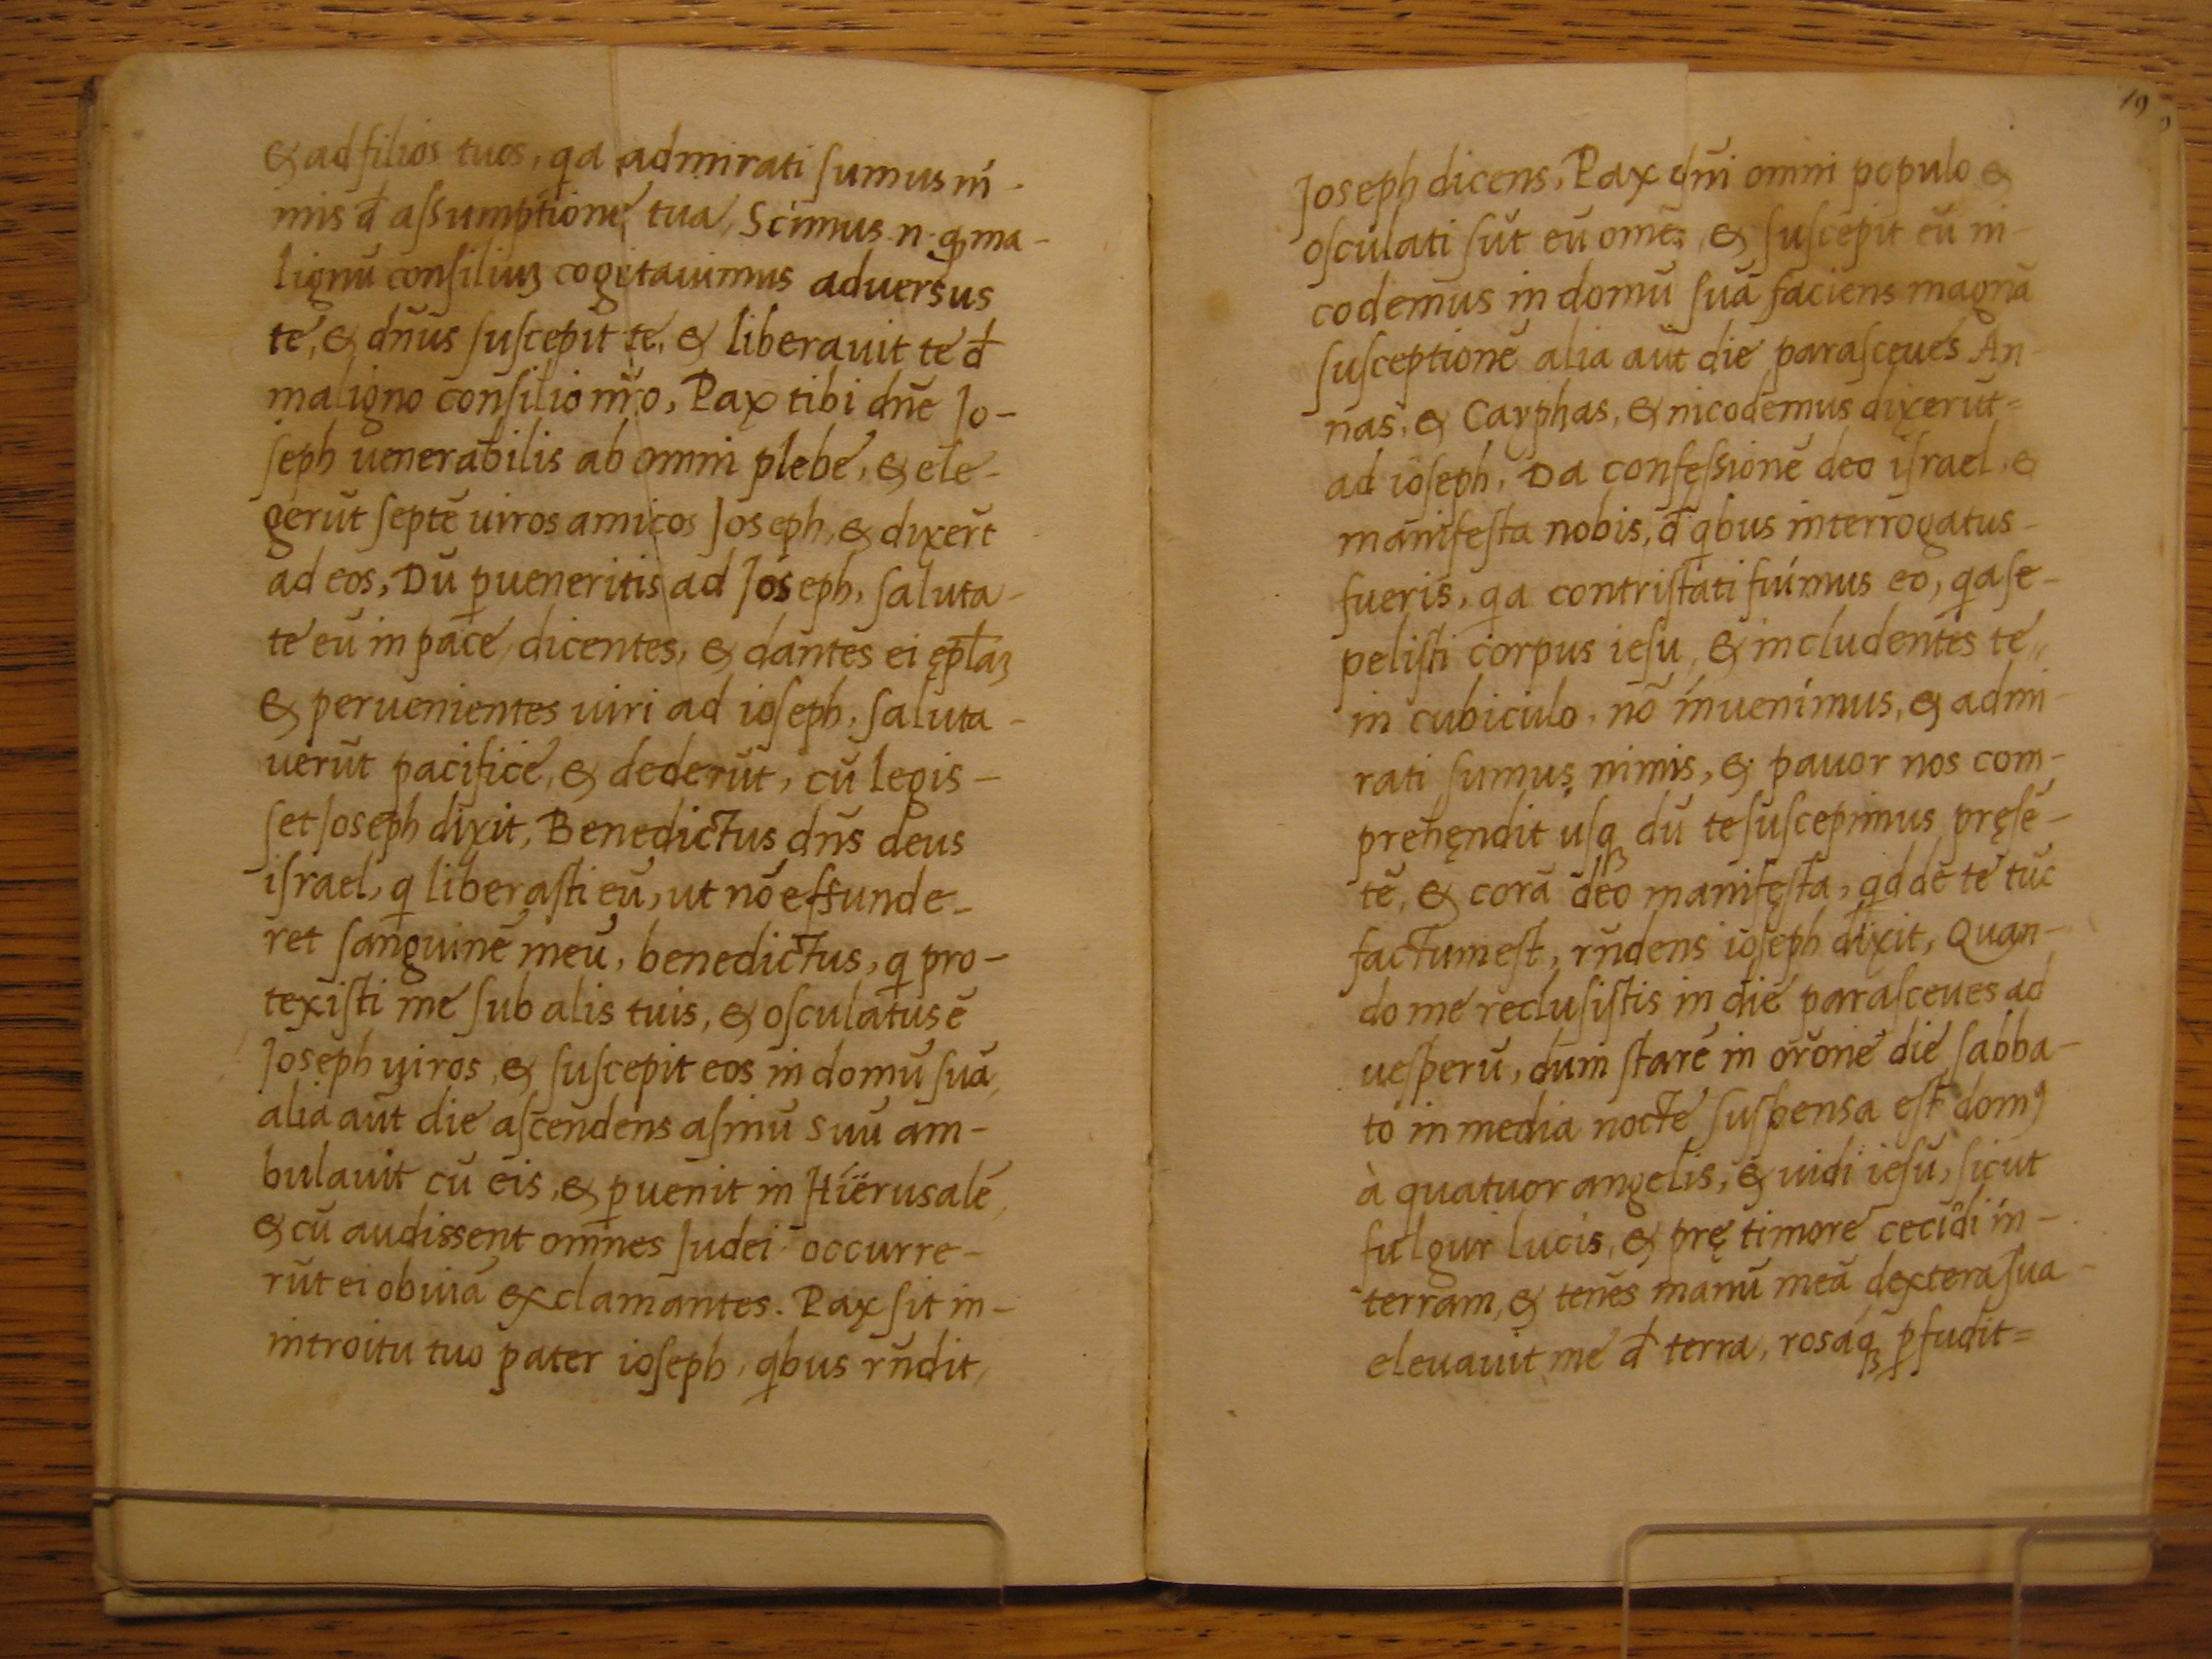 & ad filios tuos, qa admirati sumus ni-
mis đ assumptione tua, Scimus .n. qꝫ ma-
lignū consiliuꝫ cogitauimus adversus
te, & dñus suscepit te, & liberavit te đ
maligno consilio nr̄o, Pax tibi dñe Jo-
seph uenerabilis ab omni plebe, & ele-
gerūt septē uiros amicos Joseph, & dixert̄
ad eos, Dū ꝑueneritis ad Joseph, saluta-
te eū in pace, dicentes, & dantes ei ep̄laꝫ
& peruenientes uiri ad ioseph, saluta-
uerūt pacifice, & dederūt, cū legis-
set Joseph dixit, Benedictus dñs deus
israel, q liberasti eū, ut nō effunde-
ret sanguinē meū, benedictus, q pro-
texisti me sub alis tuis, & osculatus ē
Joseph uiros, & suscepit eos in domū suā,
alia aūt die ascendens asinū suū am-
bulavit cū eis, & ꝑuenit in Hiërusalē,
& cū audissent omnes Judei occurre-
rūt ei obuiā exclamantes. Pax sit in-
introitu tuo pater ioseph, qbus rñdit,
19
Joseph dicens, Pax dñi omni populo &
osculati sūt eū omēs, & suscepit eū ni-
codemus in domū suā faciens magnā
susceptionē alia aūt die parasceues An-
nas, & Cayphas, & nicodemus dixerūt=
ad ioseph, Da confessionē deo israel, &
manifesta nobis, đ qbus interrogatus-
fueris, qa contristati fuimus eo, qa se-
pelisti corpus iesu, & includentes te"
in cubiculo, nō inuenimus, & admi-
rati sumus nimis, & pavor nos com-
prehęndit usqꝫ dū te suscepimus pręsē-
tē, & corā deo manifęsta, qd de te tūc
factum est, rñdens ioseph dixit, Quan-
do me reclusistis in die parasceues ad
uesperū, dum starē in orōne die sabba-
to in media nocte suspensa est domꝰ
à quatuor angelis, & uidi iesū, sicut
fulgur lucis, & prę timore cecidi in-
terram, & tenēs manū meā dextera sua-
eleuavit me đ terra, rosaqꝫ ꝑfudit=